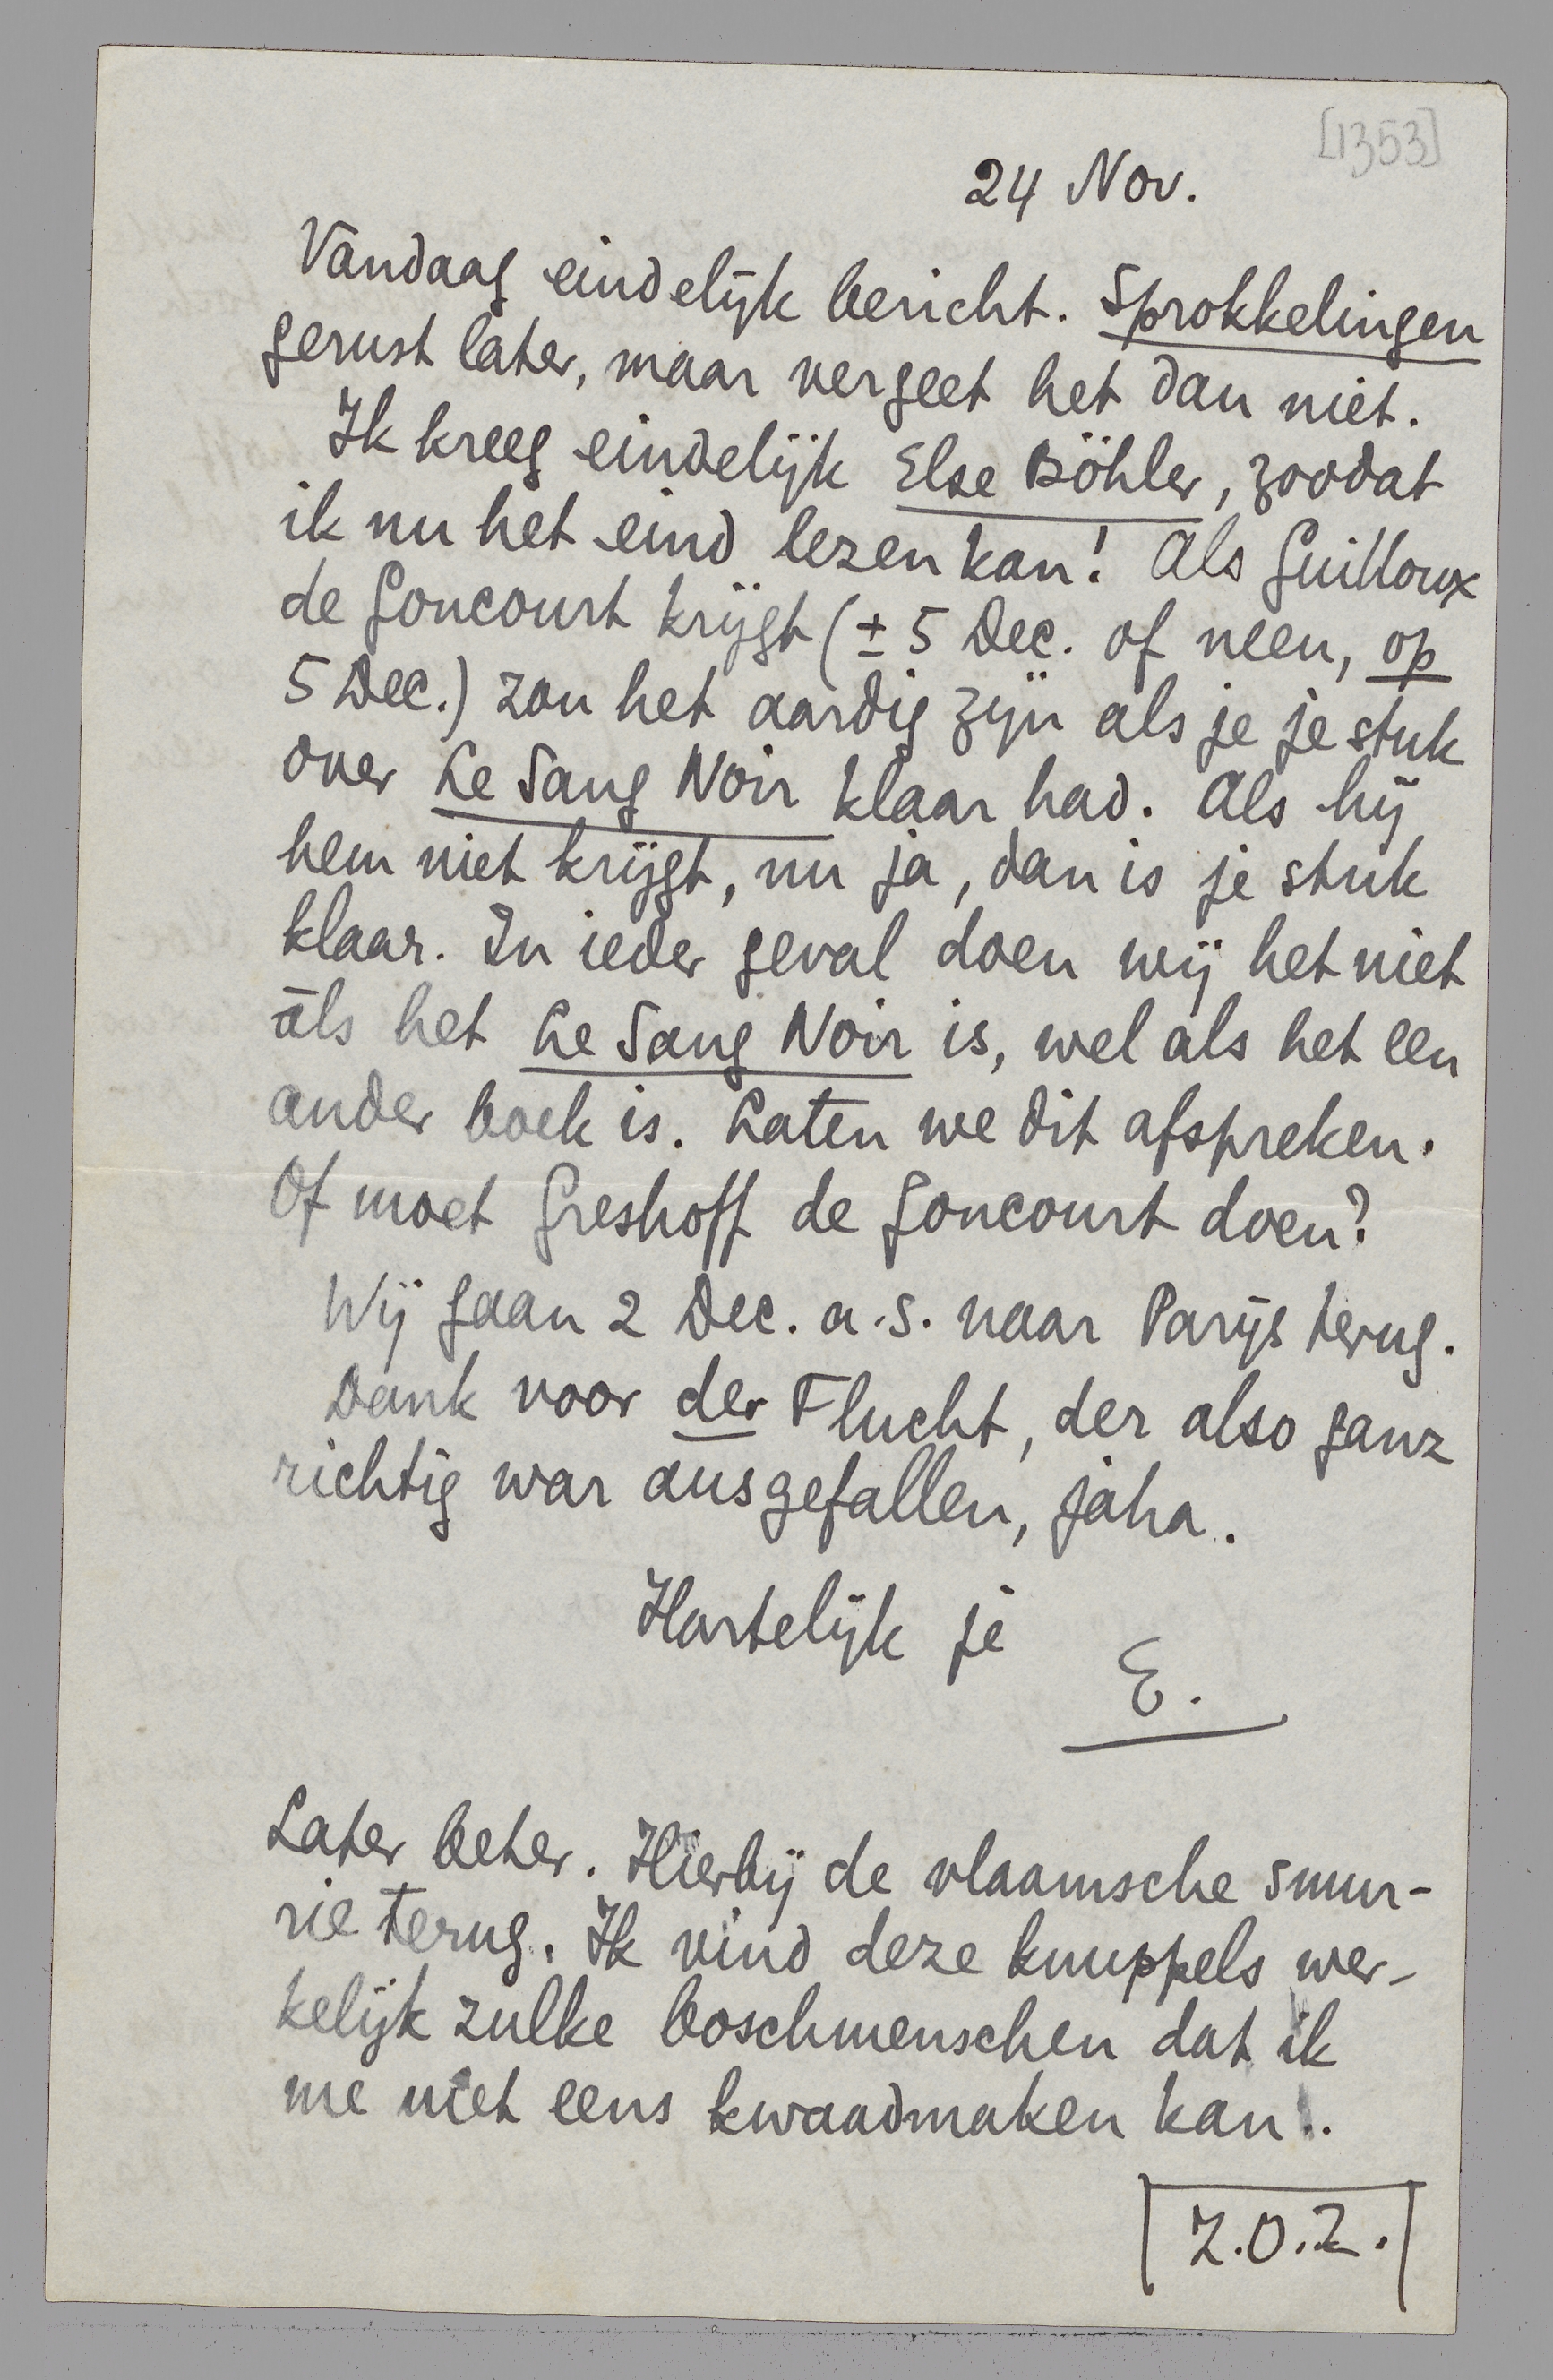 [1353]
24 Nov.
Vandaag eindelijk bericht. Sprokkelingen
gerust later, maar vergeet het dan niet.
Ik kreeg eindelijk Else Böhler, zoodat
ik nu het eind lezen kan! Als Guilloux
de Goncourt krijgt (± 5 Dec. of neen, op
5 Dec.) zou het aardig zijn als je je stuk
over Le Sang Noir klaar had. Als hij
hem niet krijgt, nu ja, dan is je stuk
klaar. In ieder geval doen wij het niet
àls het Le Sang Noir is, wel als het een
ander boek is. Laten we dit afspreken.
Of moet Greshoff de Goncourt doen?
Wij gaan 2 Dec. a.s. naar Parijs terug.
Dank voor der Flucht, der also ganz
richtig war ausgefallen, jaha.
Hartelijk je
E.
Later beter. Hierbij de vlaamsche smur-
rie terug. Ik vind deze knuppels wer-
kelijk zulke boschmenschen dat ik
me niet eens kwaadmaken kan..
Z.O.Z.